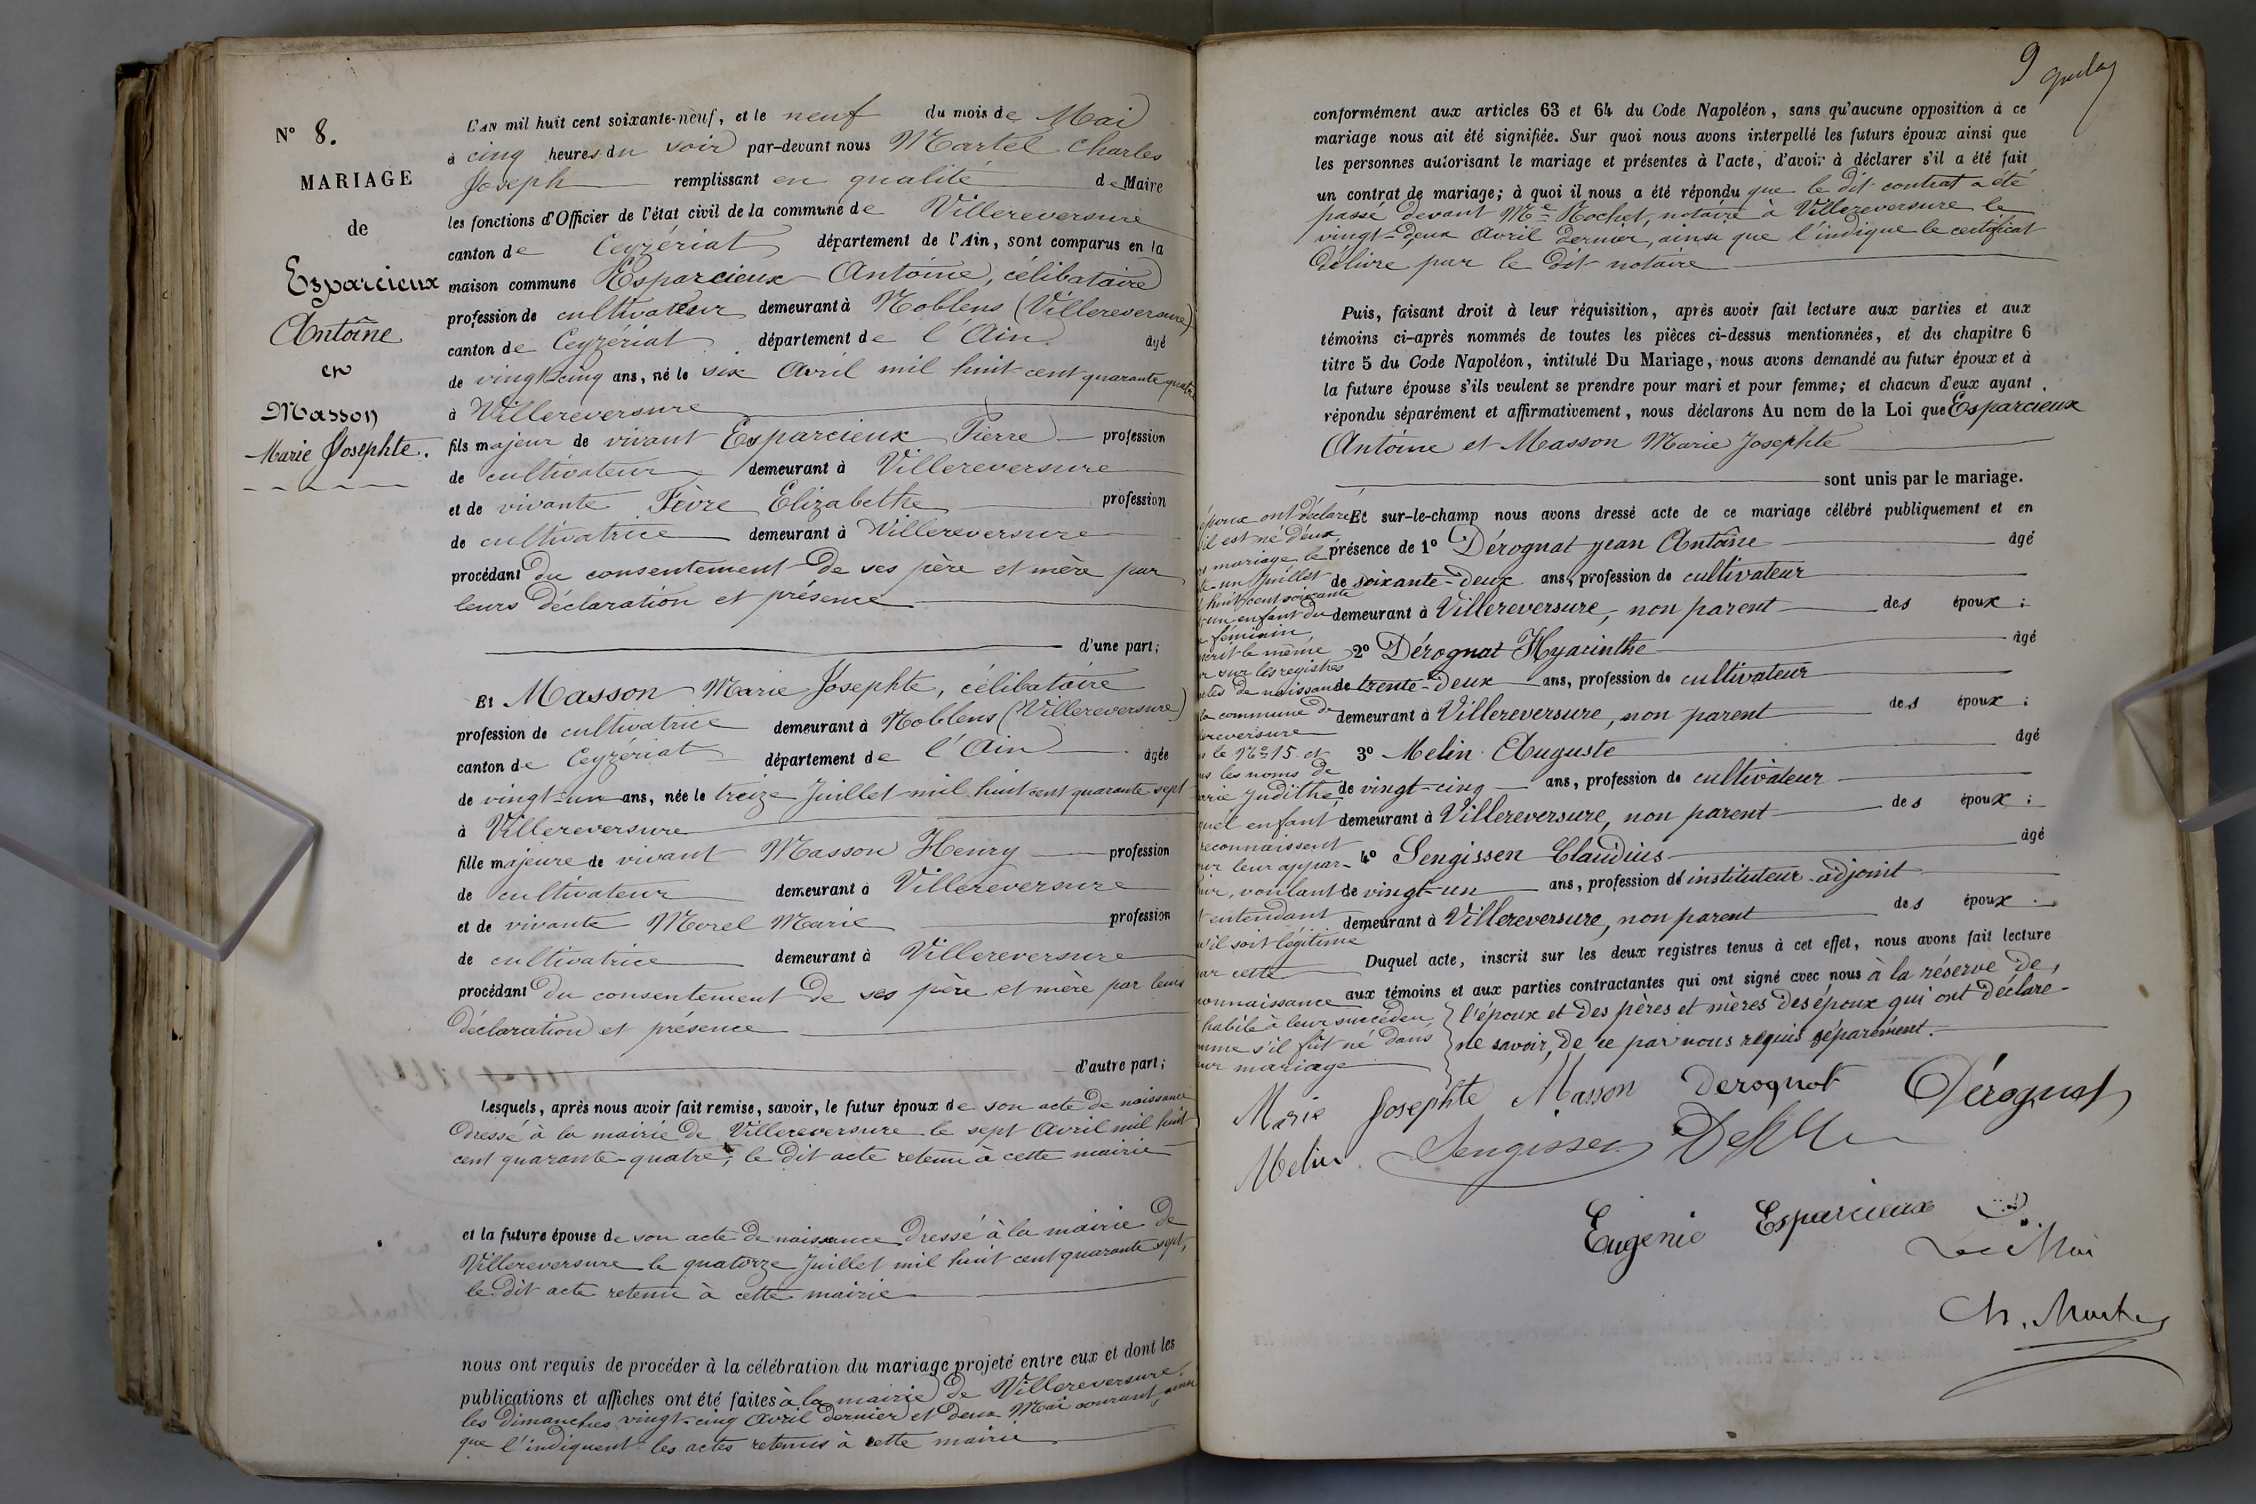 N° 8.
MARIAGE
de
Esparcieux
Antoine
et
Masson
Marie Josephte.
L'AN mil huit cent soixante-neuf, et le neuf du mois de Mai
à cinq heures du soir par-devant nous Martel Charles
Joseph remplissant en qualité de Maire
les fonctions d'Officier de l'état civil de la commune de Villereversure
canton de Ceyzériat département de l'Ain, sont comparus en la
maison commune Esparcieux Antoine, célibataire
profession de cultivateur demeurant à Noblens (Villereversure)
canton de Ceyzériat département de l'Ain âgé
de vingt-cinq ans, né le six Avril mil huit cent quarante quatre
à Villereversure
fils majeur de vivant Esparcieux Pierre profession
de cultivateur demeurant à Villereversure
et de vivante Fèvre Elizabethe profession
de cultivatrice demeurant à Villereversure
procédant du consentement de ses père et mère par
leurs déclaration et présence
d'une part;
Et Masson Marie Josephte, célibataire
profession de cultivatrice demeurant à Noblens (Villereversure)
canton de Ceyzériat département de l'Ain âgée
de vingt-un ans, née le treize Juillet mil huit cent quarante sept
à Villereversure
fille majeure de vivant Masson Henry profession
de cultivateur demeurant à Villereversure
et de vivante Morel Marie profession
de cultivatrice demeurant à Villereversure
procédant du consentement de ses père et mère par leurs
déclaration et présence
d'autre part;
Lesquels, après nous avoir fait remise, savoir, le futur époux de son acte de naissance
dressé à la mairie de Villereversure le sept Avril mil huit
cent quarante-quatre, le dit acte retenu à cette mairie
et la future épouse de son acte de naissance dressé à la mairie de
Villereversure le quatorze Juillet mil huit cent quarante sept,
le dit acte retenu à cette mairie
nous ont requis de procéder à la célébration du mariage projeté entre eux et dont les
publications et affiches ont été faites à la mairie de Villereversure
les dimanches vingt-cinq Avril dernier et deux Mai courant, ainsi
que l'indiquent les actes retenus à cette mairie
9
conformément aux articles 63 et 64 du Code Napoléon, sans qu'aucune opposition à ce
mariage nous ait été signifiée. Sur quoi nous avons interpellé les futurs époux ainsi que
les personnes autorisant le mariage et présentes à l'acte, d'avoir à déclarer s'il a été fait
un contrat de mariage; à quoi il nous a été répondu que le dit contrat a été
passé devant Me Rochet, notaire à Villereversure le
vingt-deux Avril dernier, ainsi que l'indique le certificat
délivré par le dit notaire
Puis, faisant droit à leur réquisition, après avoir fait lecture aux parties et aux
témoins ci-après nommés de toutes les pièces ci-dessus mentionnées, et du chapitre 6
titre 5 du Code Napoléon, intitulé Du Mariage, nous avons demandé au futur époux et à
la future épouse s'ils veulent se prendre pour mari et pour femme; et chacun d'eux ayant
répondu séparément et affirmativement, nous déclarons Au nom de la Loi que Esparcieux
Antoine et Masson Marie Josephte
sont unis par le mariage.
Et sur-le-champ nous avons dressé acte de ce mariage célébré publiquement et en
présence de 1° Dérognat jean Antoine âgé
de soixante-deux ans, profession de cultivateur
demeurant à Villereversure, non parent des époux;
2° Dérognat Hyacinthe âgé
de trente-deux ans, profession de cultivateur
demeurant à Villereversure, non parent des époux;
3° Melin Auguste âgé
de vingt-cinq ans, profession de cultivateur
demeurant à Villereversure, non parent des époux;
4° Sengissen Claudius âgé
de vingt-un ans, profession d'instituteur-adjoint
demeurant à Villereversure, non parent des époux.
Duquel acte, inscrit sur les deux registres tenus à cet effet, nous avons fait lecture
aux témoins et aux parties contractantes qui ont signé avec nous à la réserve de
l'époux et des pères et mères des époux qui ont déclaré
ne savoir, de ce par nous requis séparément.
époux ont déclaré
il est né d'eux
mariage le
un Juillet
huit cent soixante
un enfant du
féminin
le même
sur les registres
de naissance
la commune de
le No 15 et
les noms de
Judithe,
enfant
reconnaissent
leur appar-
voulant
entendant
soit légitimé
cette
habile à leur succéder
s'il fût né dans
mariage
Marie Josephte Masson Derognat Dérognat
Melin Sengissen
Eugénie Esparcieux
Le Mai
Ch. Martel